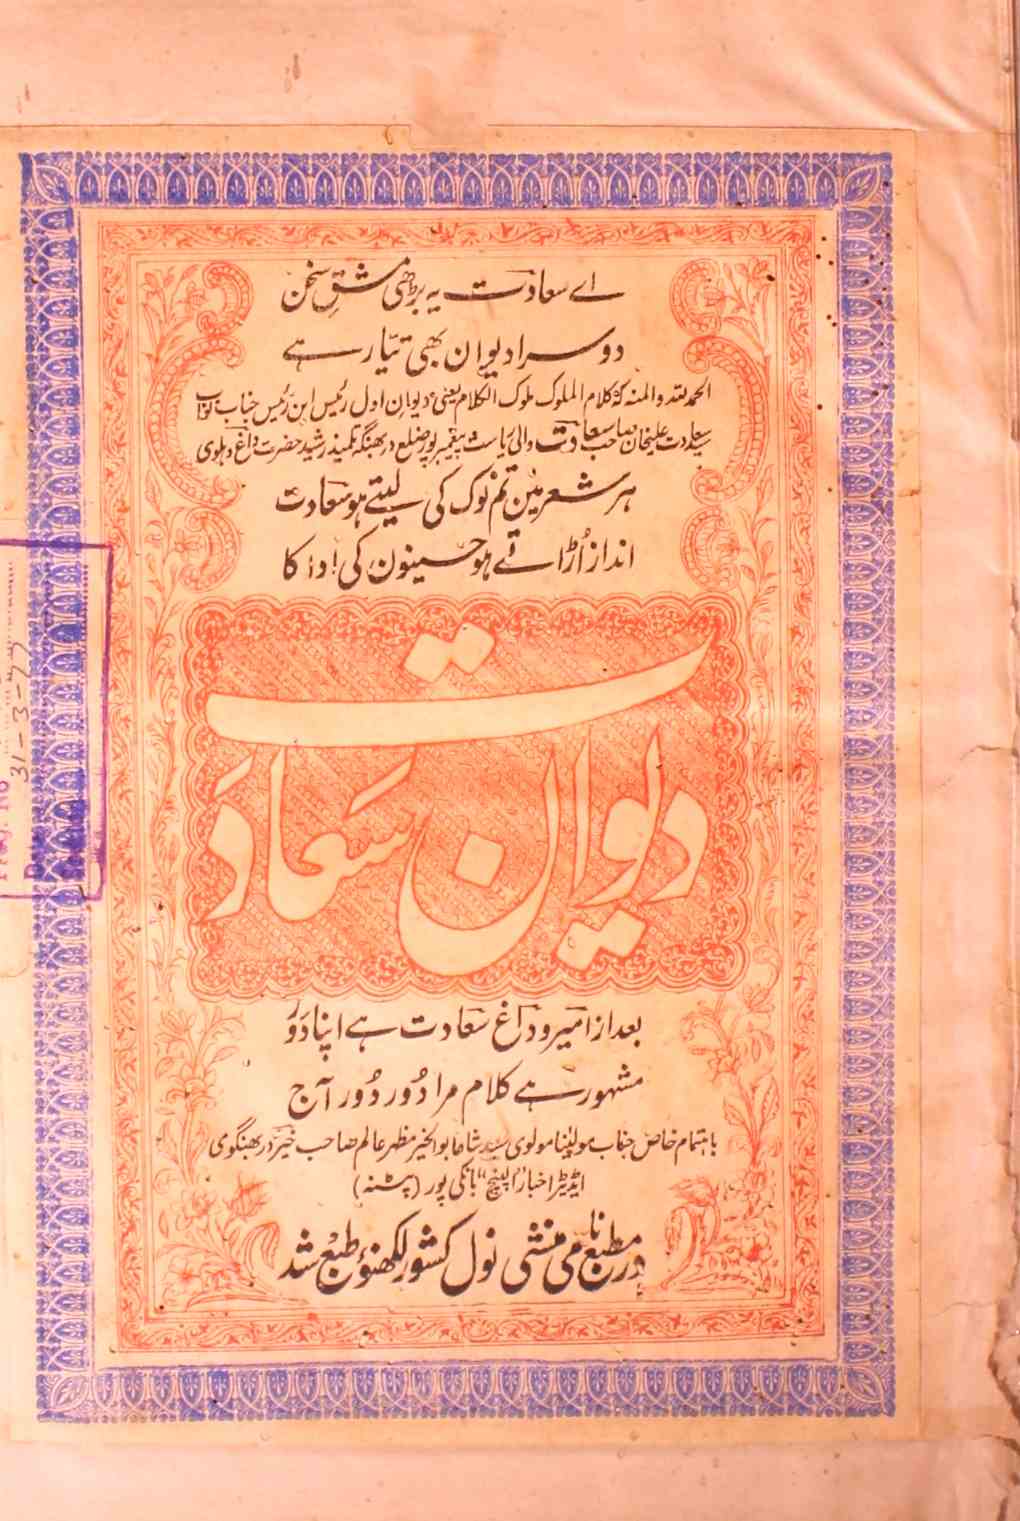 اے سعادت یہ بڑھی مشقِ سخن
دوسرا دیوان بھی تیّار ہے
الحمد للہ والمنہ کہ کلام الملوک ملوک الکلام یعنی دیوانِ اول رئیس ابن رئیس جناب نواب
سید سعادت علیخان صاحب سعادت والی ریاست پیغمبر پور ضلع دربھنگہ تلمیذ رشید حضرت داغ دہلوی
ہر شعر مین تم نوک کی لیتے ہو سعادت
انداز اُڑاتے ہو حسینون کی ادا کا
دیوان سعادت
بعد از امیر و داغ سعادت ہے اپنا دَور
مشہور ہے کلام مرا دُور دُور آج
باہتمام خاص جناب مولٰینا مولوی سید شاہ ابو الخیر مظہر عالم صاحب خیر دربھنگوی
ایڈیٹر اخبار "الپنچ" بانکی پور (پٹنہ)
در مطبع نامی منشی نول کشور لکھنؤ طبع شد
31-3-77
Date